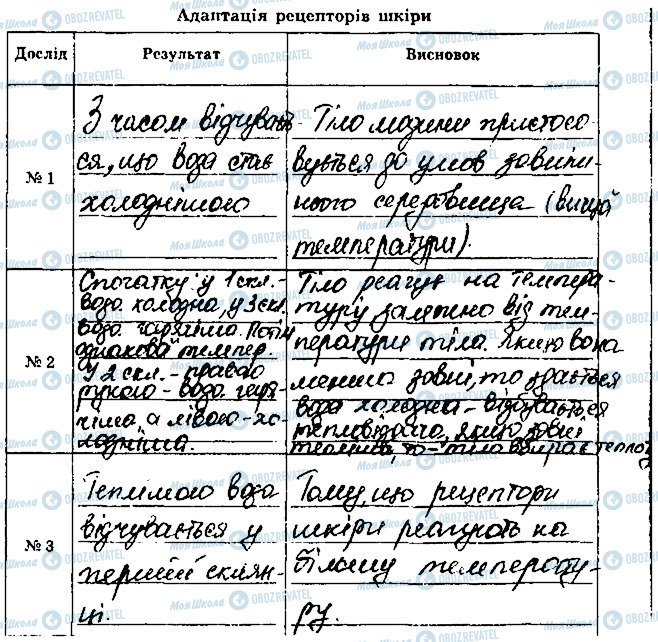 Адаптація рецепторів шкіри
Дослід Результат Висновок
№ 1
З часом відчуваєть
ся, що вода стає
холоднішою
Тіло людини пристосо
вується до умов зовніш-
нього середовища (вищої
температури).
№ 2
Спочатку у 1 скл.
вода холодна, у 3 скл.
вода гарячіша. Потім
однакова темпер.
У 2 скл. - правою
рукою - вода гаря-
чіша, а лівою - хо-
лодніша.
Тіло реагує на темпера-
туру залежно від тем-
ператури тіла. Якщо вона
менша зовні, то здається
вода холодна - відбувається
тепловіддача, якщо зовні
то - тіло вбирає теплоту
№ 3
Теплішою вода
відчувається у
першій склян-
ці.
Тому, що рецептори
шкіри реагують на
більшу температу-
ру.
Моя Школа OBOZREVATEL